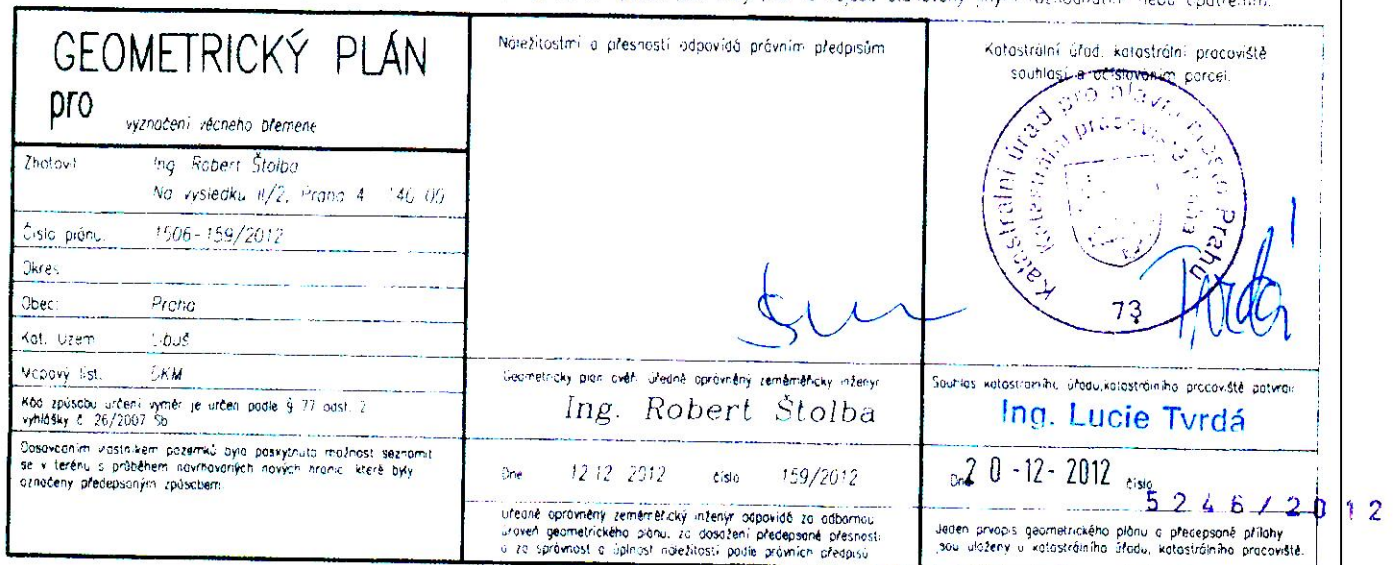 GEOMETRICKÝ PLÁN
pro
vyznačení věcného břemene
Zhotovil: Ing. Robert Štolba
Na výsledku II/2, Praha 4 140 00
Číslo plánu: 1506-159/2012
Okres:
Obec: Praha
Kat. území: Libuš
Mapový list: DKM
Kód způsobu určení výměr je určen podle § 77 odst. 2
vyhlášky č. 26/2007 Sb.
Dosavadním vlastníkem pozemků byla poskytnuta možnost seznámit
se v terénu s průběhem navrhovaných nových hranic, které byly
označeny předepsaným způsobem:
Náležitostmi a přesností odpovídá právním předpisům
Geometrický plán ověřil úředně oprávněný zeměměřický inženýr
Ing. Robert Štolba
Dne 12.12.2012 číslo 159/2012
Úředně oprávněný zeměměřický inženýr odpovídá za odbornou
úroveň geometrického plánu, za dosažení předepsané přesnosti
a za správnost a úplnost náležitostí podle právních předpisů
Katastrální úřad, katastrální pracoviště
souhlasí s očíslováním parcel.
Katastrální úřad pro hlavní město Prahu
Katastrální pracoviště Praha
73
Tvrdá
Souhlas katastrálního úřadu, katastrálního pracoviště potvrdil
Ing. Lucie Tvrdá
Dne 20-12-2012 číslo
5246/2012
Jeden prvopis geometrického plánu a předepsané přílohy
jsou uloženy u katastrálního úřadu, katastrálního pracoviště.